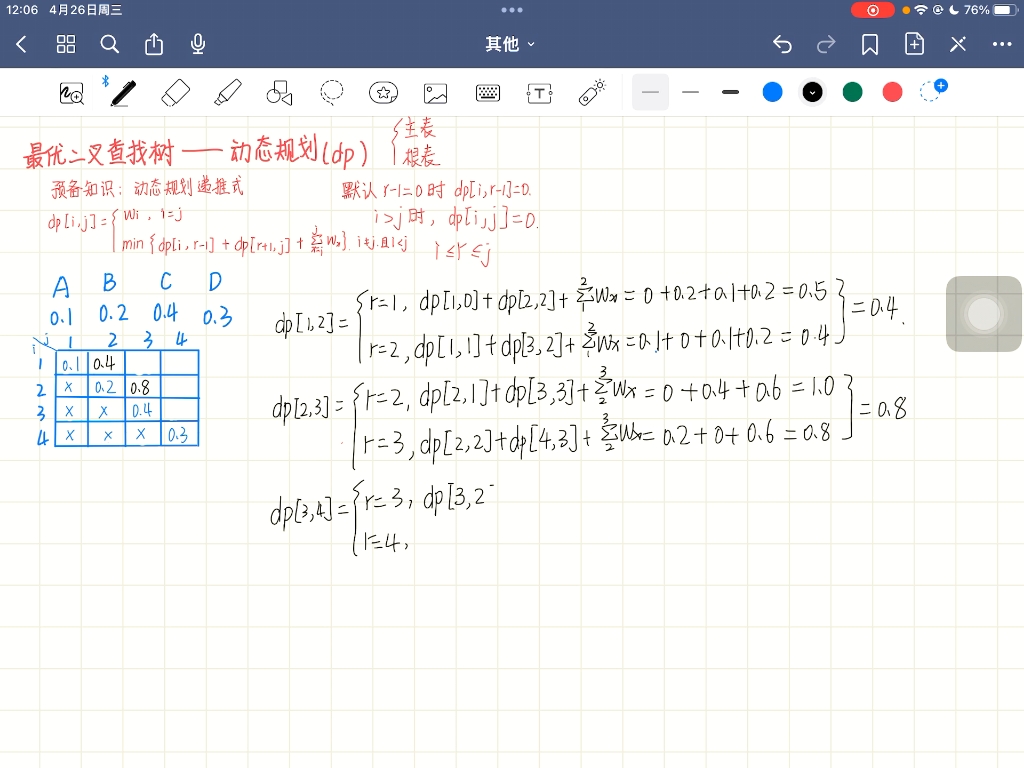 12:06 4月26日周三
76%
其他
T
最优二叉查找树——动态规划(dp) { 主表
根表
预备知识：动态规划递推式
默认 r-1=0时 dp[i,r-1]=0.
dp[i,j]={ wi, i=j
i>j时, dp[i,j]=0.
min{dp[i,r-1]+dp[r+1,j]+∑(x=i→j)Wx}. i≠j且i<j
i≤r≤j
A B C D
0.1 0.2 0.4 0.3
i j 1 2 3 4
1 0.1 0.4
2 x 0.2 0.8
3 x x 0.4
4 x x x 0.3
dp[1,2]={ r=1, dp[1,0]+dp[2,2]+∑(1→2)Wx=0+0.2+0.1+0.2=0.5
r=2, dp[1,1]+dp[3,2]+∑(1→2)Wx=0.1+0+0.1+0.2=0.4 }=0.4.
dp[2,3]={ r=2, dp[2,1]+dp[3,3]+∑(2→3)Wx=0+0.4+0.6=1.0
r=3, dp[2,2]+dp[4,3]+∑(2→3)Wx=0.2+0+0.6=0.8 }=0.8
dp[3,4]={ r=3, dp[3,2
r=4,